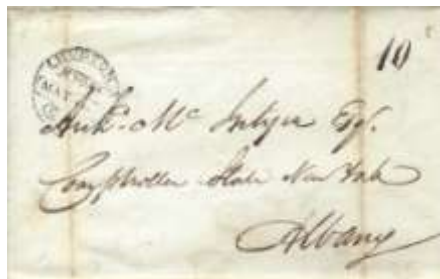 10
Archd. Mc Intyre Esqr.
Comptroller State New York
Albany